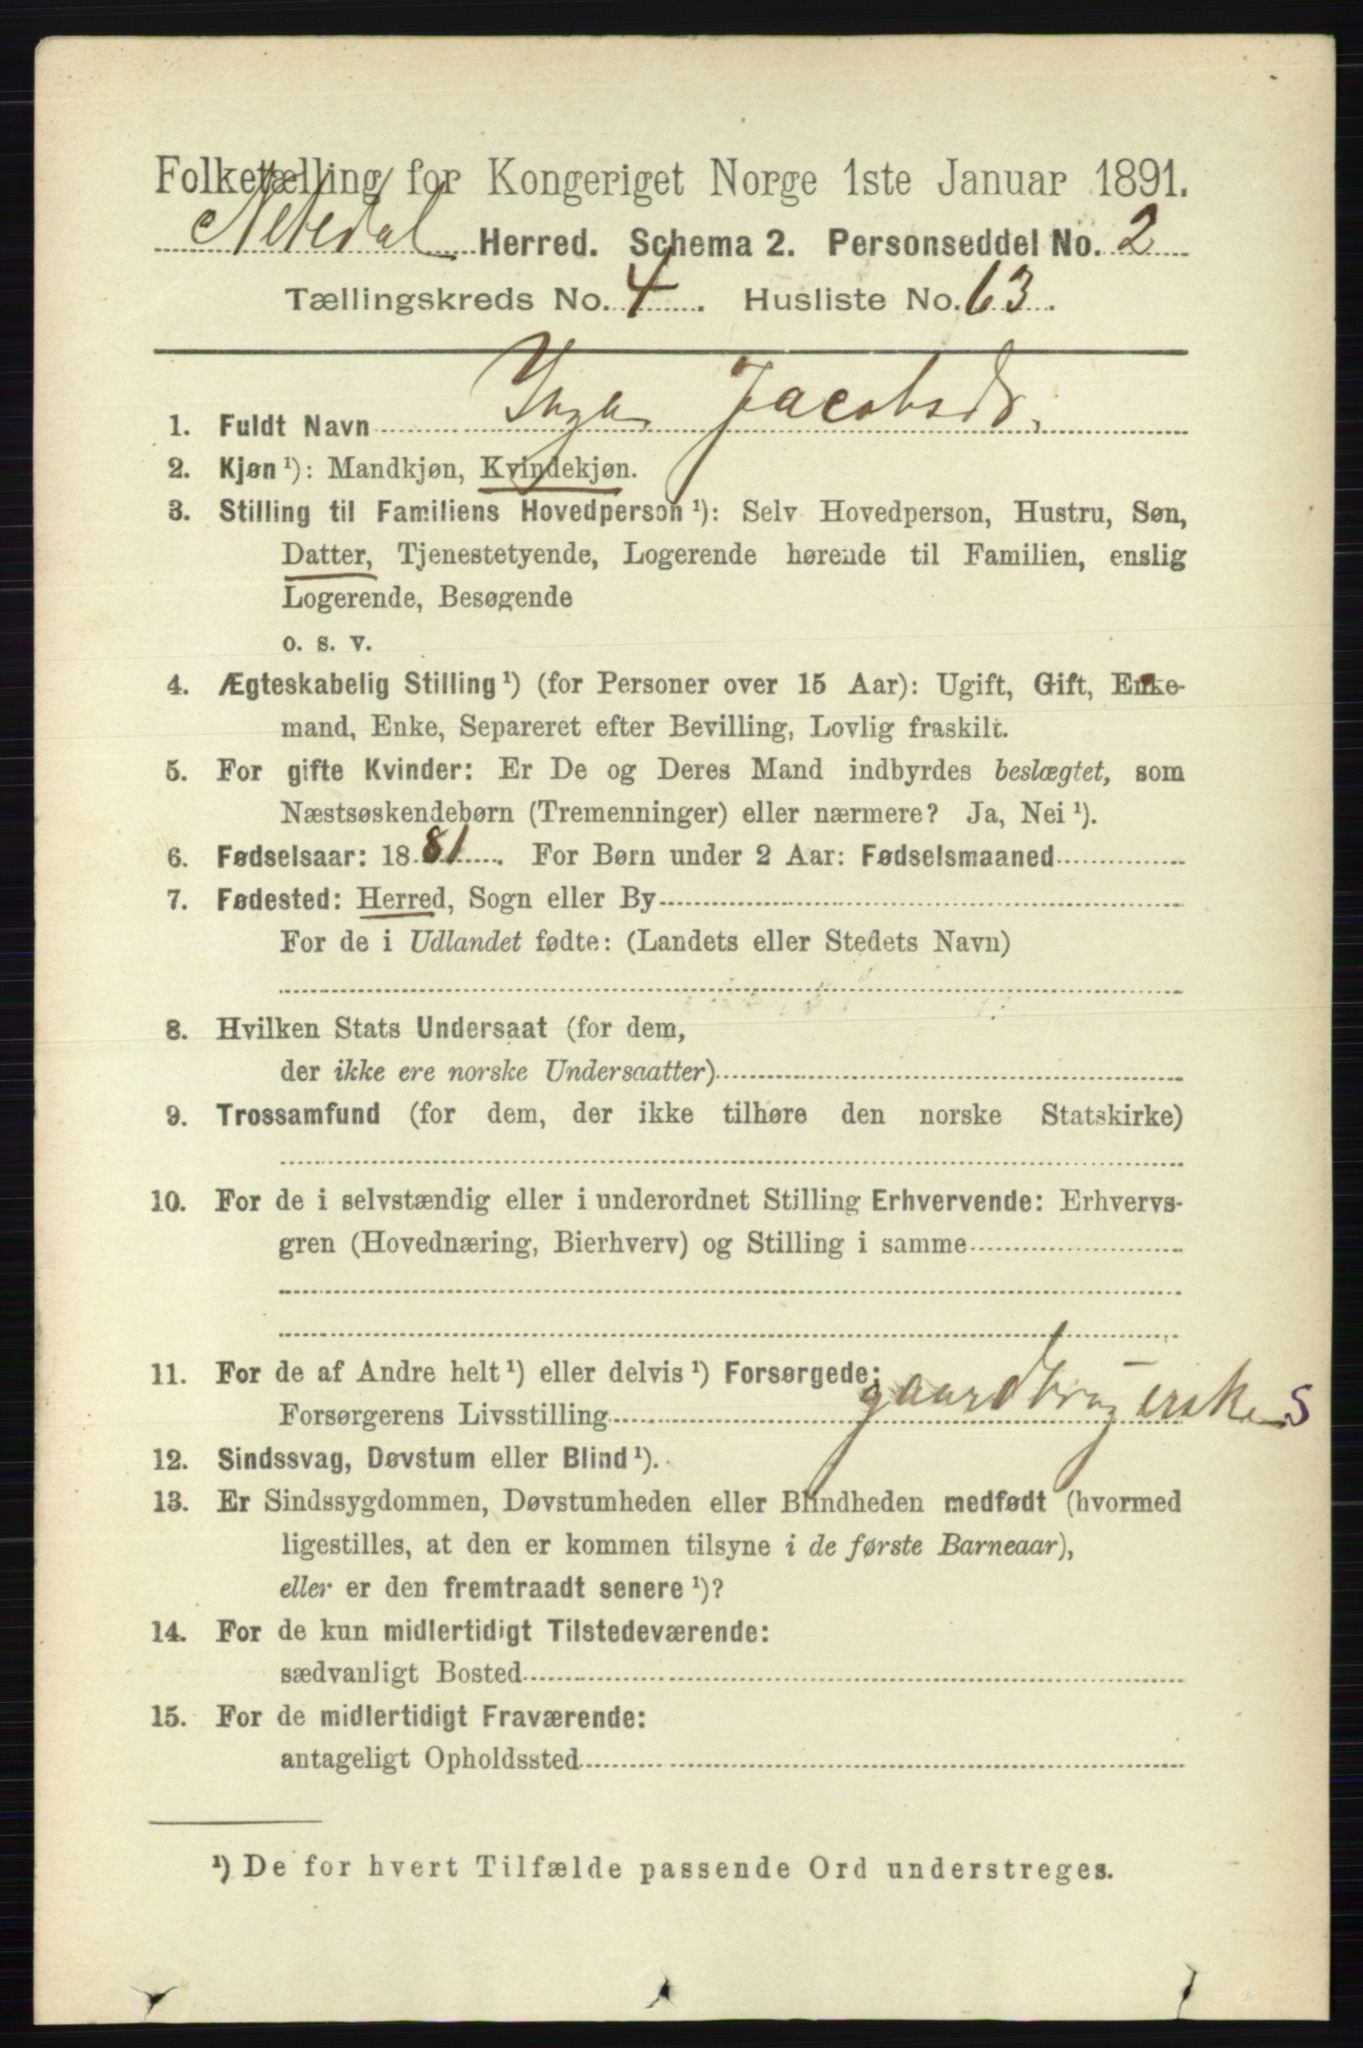 Folketælling for Kongeriget Norge 1ste Januar 1891.
Nesedal Herred. Schema 2. Personseddel No. 2
Tællingskreds No. 4. Husliste No. 63.
1. Fuldt Navn Inga Jacobsdr.
2. Kjøn ¹): Mandkjøn, Kvindekjøn.
3. Stilling til Familiens Hovedperson ¹): Selv Hovedperson, Hustru, Søn,
Datter, Tjenestetyende, Logerende hørende til Familien, enslig
Logerende, Besøgende
o. s. v.
4. Ægteskabelig Stilling ¹) (for Personer over 15 Aar): Ugift, Gift, Enke-
mand, Enke, Separeret efter Bevilling, Lovlig fraskilt.
5. For gifte Kvinder: Er De og Deres Mand indbyrdes beslægtet, som
Næstsøskendebørn (Tremenninger) eller nærmere? Ja, Nei ¹).
6. Fødselsaar: 1881. For Børn under 2 Aar: Fødselsmaaned
7. Fødested: Herred, Sogn eller By
For de i Udlandet fødte: (Landets eller Stedets Navn)
8. Hvilken Stats Undersaat (for dem,
der ikke ere norske Undersaatter)
9. Trossamfund (for dem, der ikke tilhøre den norske Statskirke)
10. For de i selvstændig eller i underordnet Stilling Erhvervende: Erhvervs-
gren (Hovednæring, Bierhverv) og Stilling i samme
11. For de af Andre helt ¹) eller delvis ¹) Forsørgede:
Forsørgerens Livsstilling gaardbrugerske S
12. Sindssvag, Døvstum eller Blind ¹).
13. Er Sindssygdommen, Døvstumheden eller Blindheden medfødt (hvormed
ligestilles, at den er kommen tilsyne i de første Barneaar),
eller er den fremtraadt senere ¹)?
14. For de kun midlertidigt Tilstedeværende:
sædvanligt Bosted
15. For de midlertidigt Fraværende:
antageligt Opholdssted
¹) De for hvert Tilfælde passende Ord understreges.